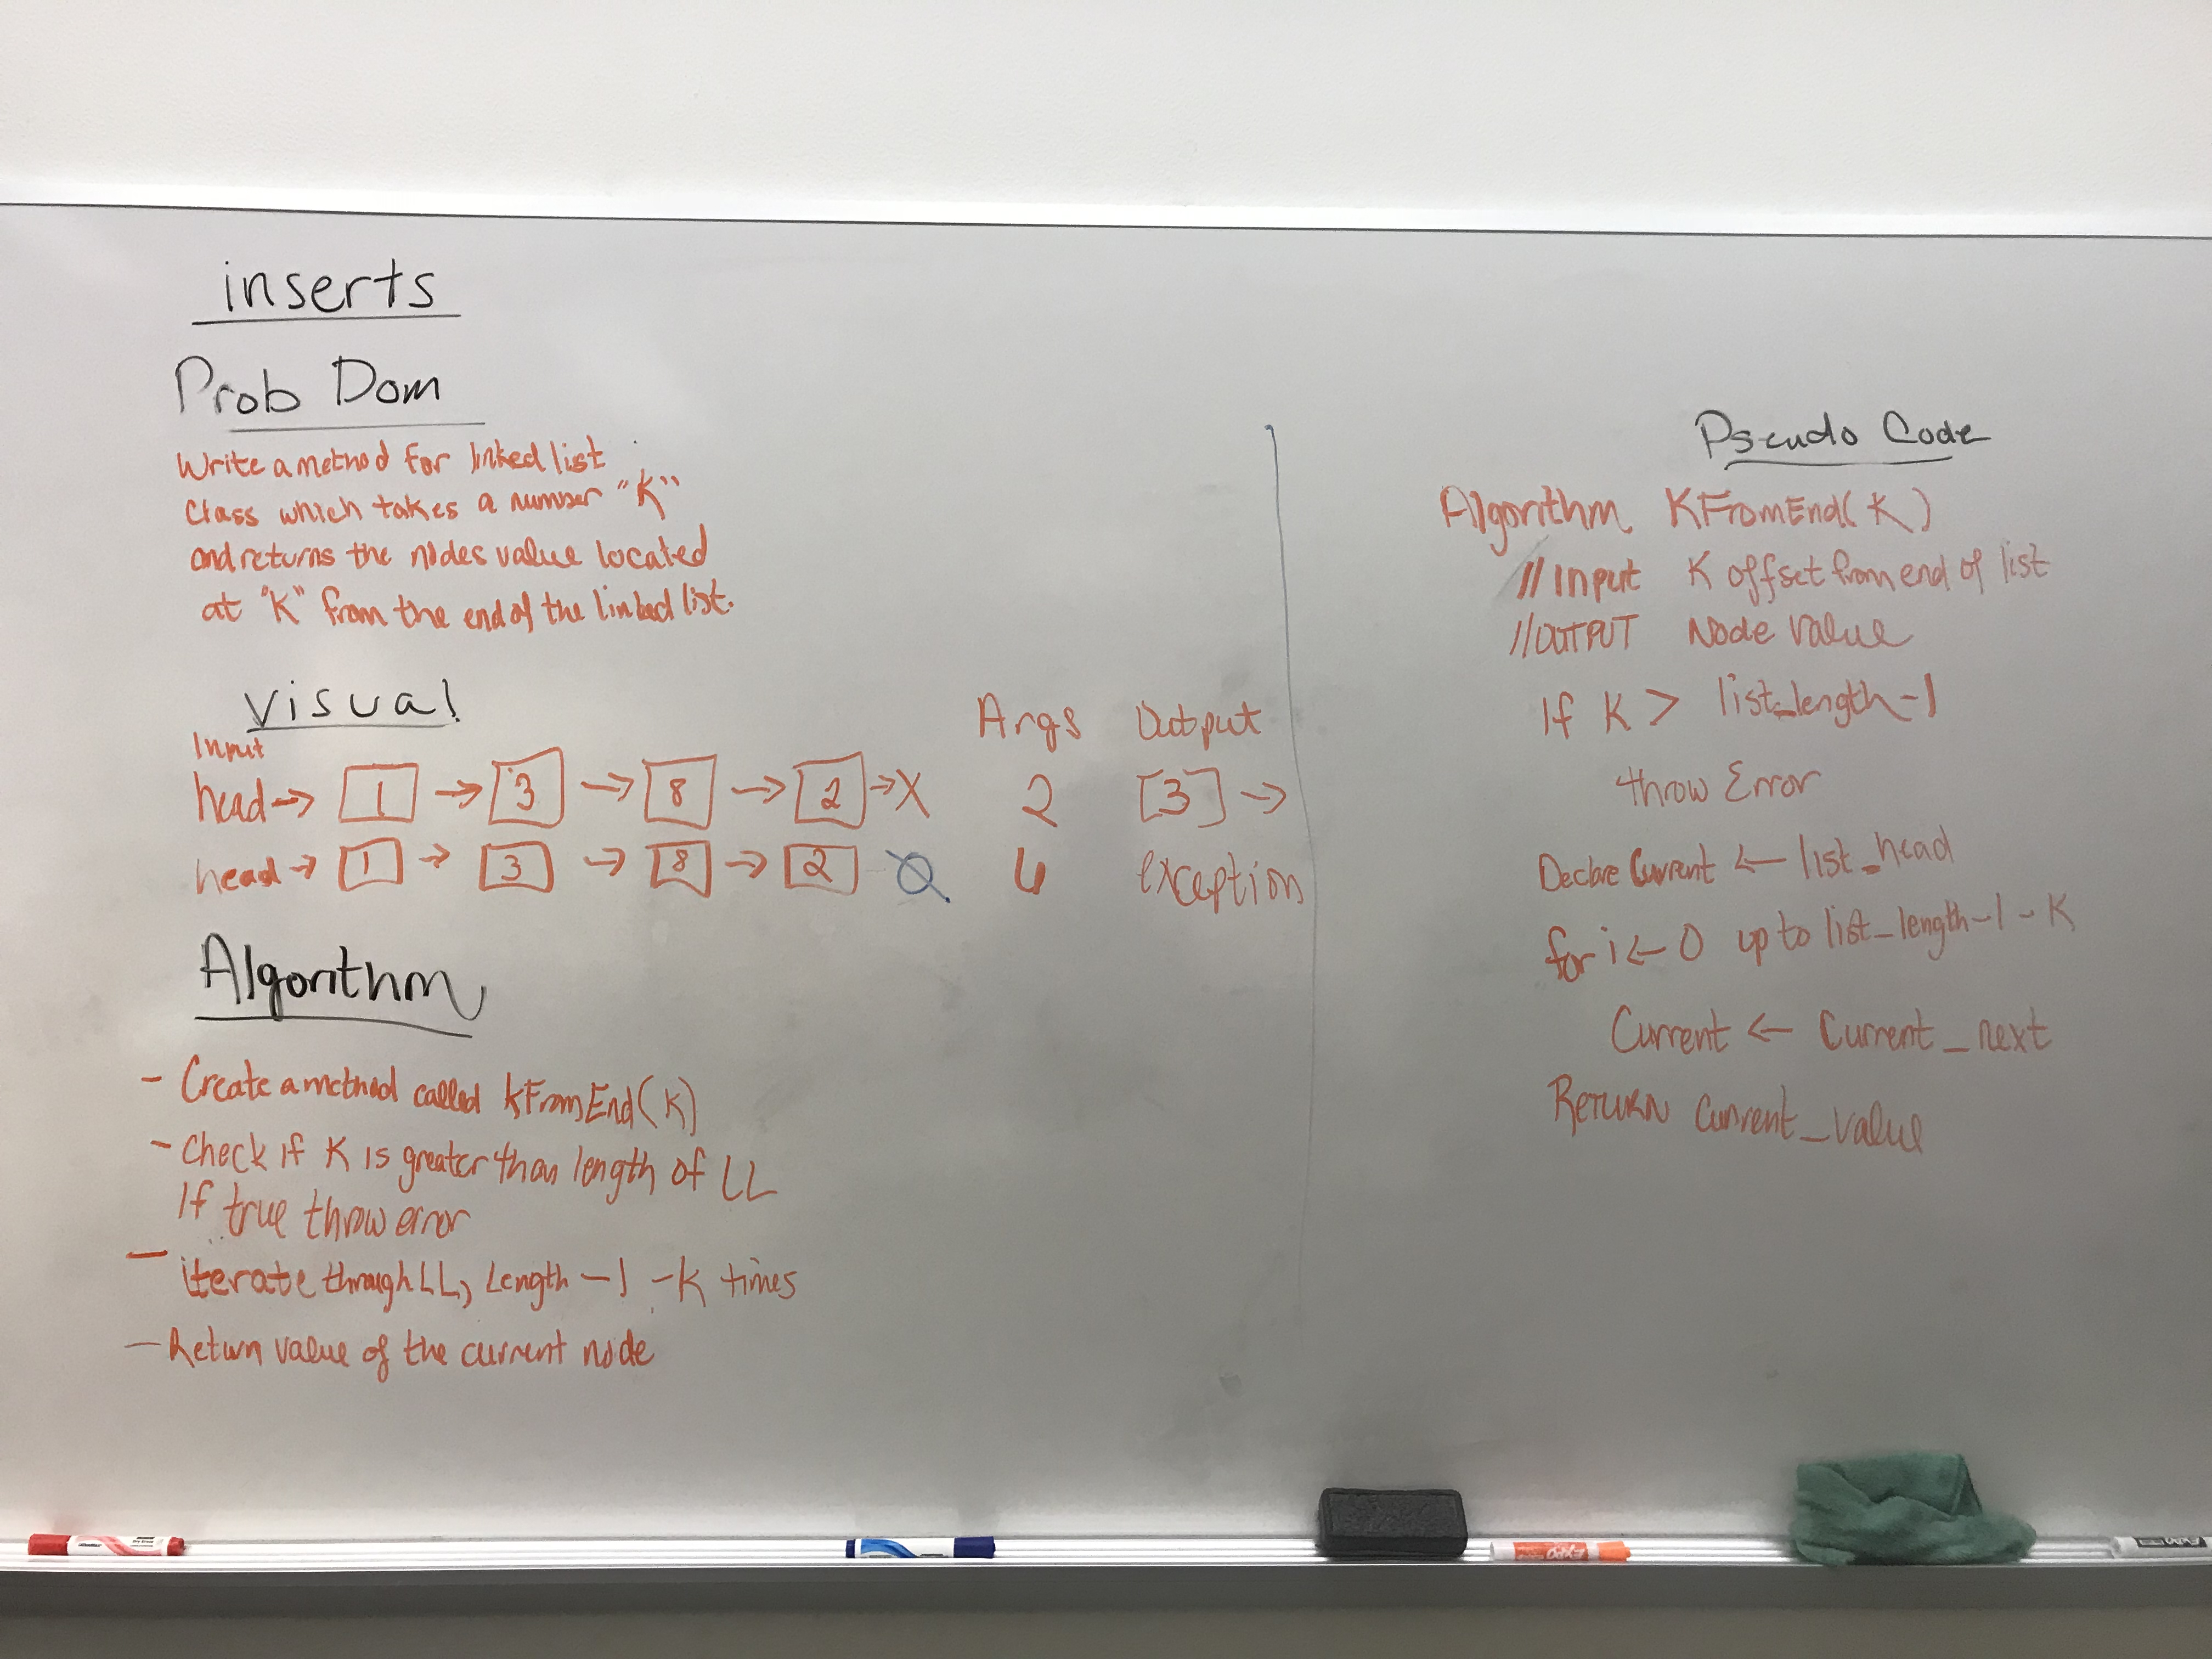 inserts
Prob Dom
Write a method for linked list
class which takes a number "K"
and returns the nodes value located
at "K" from the end of the linked list.
Visual
Input
Args Output
head → 1 → 3 → 8 → 2 → X 2 [3] →
head → 1 → 3 → 8 → 2 6 exception
Algorithm
- Create a method called kFromEnd(K)
- Check if K is greater than length of LL
If true throw error
- iterate through LL, Length -1 -K times
- Return value of the current node
Pseudo Code
Algorithm KFromEnd(K)
// Input K offset from end of list
// OUTPUT Node value
If K > list_length-1
throw Error
Declare Current ← list_head
for i ← 0 up to list_length-1-K
Current ← Current_next
RETURN Current_value
EXPO